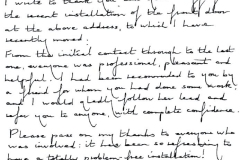 I write to thank you and
the recent installation of the front door
at the above address, to which I have
recently moved.
From the initial contact through to the last
one, everyone was professional, pleasant and
helpful. I had been recommended to you by
a friend for whom you had done some work
and I would gladly follow her lead and
refer you to anyone, with complete confidence.
Please pass on my thanks to everyone who
was involved: it has been so refreshing to
have a totally problem-free installation.